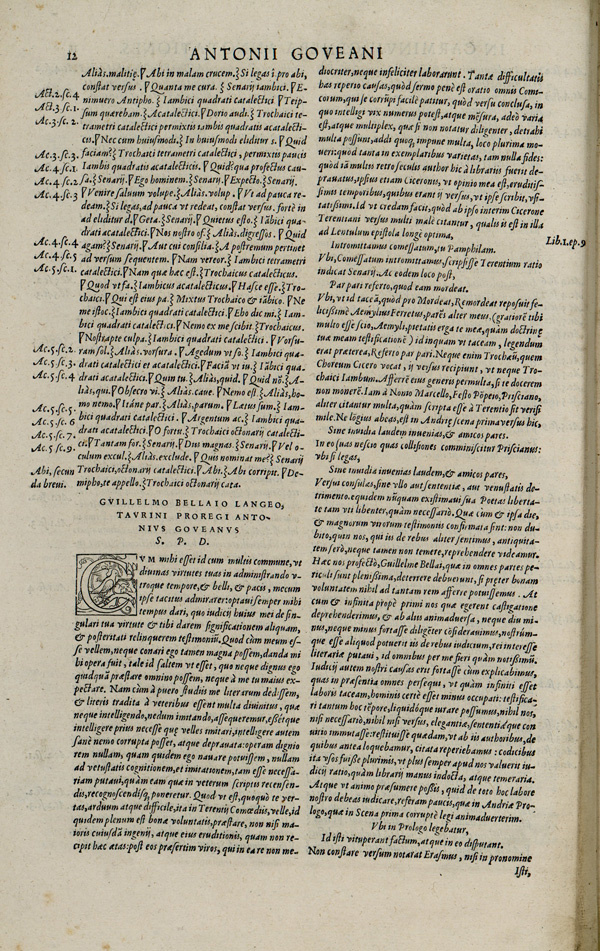 12
ANTONII GOVEANI
Aliàs. malitię. ⁋ Abi in malam crucem. ⸿ Si legas i, pro abi,
constat versus. ⁋ Quanta me cura. ⸿ Senarij Iambici. ⁋ E-
Act. 2. sc. 4
nimuero Antipho. ⸿ Iambici quadrati catalectici ⁋ Teip-
Ac. 3. sc. 1.
sum quarebam. ⸿ Acatalectici. ⁋ Dorio audi. ⸿ Trochaici te-
Ac. 3. sc. 2.
trametri catalectici permixtis iambis quadratis acatalecti-
cis. ⁋ Nec cum huiusmodi. ⸿ In huiusmodi eliditur s. ⁋ Quid
Ac. 3. sc. 3
faciam? ⸿ Trochaici tetrametri catalectici, permixtis paucis
Ac. 4. sc. 1
Iambis quadratis acatalecticis. ⁋ Quid? qua profectus cau-
Ac. 4. sc. 2
sa. ⸿ Senarij. ⁋ Ego hominem. ⸿ Senarij. ⁋ Expecto. ⸿ Senarij.
Ac. 4. sc. 3
⁋ Venire saluum volupe. ⸿ Aliàs. volup. ⁋ Vt ad pauca re-
deam. ⸿ Si legas, ad pauca vt redeat, constat versus. fortè in
ad eliditur d. ⁋ Geta. ⸿ Senarij. ⁋ Quietus esto. ⸿ Iābici qua-
drati acatalectici. ⁋ Nos nostro of. ⸿ Aliàs, digressos. ⁋ Quid
Ac. 4. sc. 4
agam? ⸿ Senarij. ⁋ Aut cui consilia. ⸿ A postremum pertinet
Ac. 4. sc. 5
ad versum sequentem. ⁋ Nam vereor. ⸿ Iambici tetrametri
Ac. 5. sc. 1.
catalectici. ⁋ Nam quæ hæc est. ⸿ Trochaicus catalecticus.
⁋ Quod vt fa. ⸿ Iambicus acatalecticus. ⁋ Hæc esse. ⸿ Tro-
chaici. ⁋ Qui est eius pa. ⸿ Mixtus Trochaico & iābico. ⁋ Ne
me istoc. ⸿ Iambici quadrati catalectici. ⁋ Eho dic mi. ⸿ Iam-
bici quadrati catalectici. ⁋ Nemo ex me scibit. ⸿ Trochaicus.
⁋ Nostrapte culpa. ⸿ Iambici quadrati catalectici. ⁋ Vorsu-
Ac. 5. sc. 2.
ram sol. ⸿ Aliàs. vorsura. ⁋ Agedum vt so. ⸿ Iambici qua-
Ac. 5. sc. 3.
drati catalectici et acatalectici. ⁋ Faciā vt iu. ⸿ Iābici qua-
Ac. 5. sc. 4.
drati acatalectici. ⁋ Quin tu. ⸿ Aliàs, quid. ⁋ Quid nō. ⸿ A-
liàs, qui. ⁋ Obsecro vi. ⸿ Aliàs. caue. ⁋ Nemo est ⸿ Aliàs, ho-
mo nemo. ⁋ Itáne par. ⸿ Aliàs, parum. ⁋ Lætus sum. ⸿ Iam-
Ac. 5. sc. 5.
bici quadrati catalectici. ⁋ Argentum ac. ⸿ Iambici qua-
Ac. 5. sc. 6
drati acatalectici. ⁋ O fortu. ⸿ Trochaici octonarij catalecti-
Ac. 5. sc. 7.
ci. ⁋ Tantam for. ⸿ Senarij. ⁋ Dus magnas. ⸿ Senarij. ⁋ Vel o-
Ac. 5. sc. 9.
culum excul. ⸿ Aliàs. exclude. ⁋ Quis nominat me? ⸿ Senarij
Abi, secun
Trochaici, octonarij catalectici. ⁋ Abi. ⸿ Abi corripit. ⁋ De-
da breui.
mipho, te appello. ⸿ Trochaici octonarij cata.
GVILLELMO BELLAIO LANGEO,
TAVRINI PROREGI ANTO-
NIVS GOVEANVS
S. P. D.
CVM mihi esset id cum multis commune, vt
diuinas virtutes tuas in administrando v-
troque tempore, & belli, & pacis, mecum
ipse tacitus admirarer: optaui semper mihi
tempus dari, quo iudicij huius mei de sin-
gulari tua virtute & tibi darem significationem aliquam,
& posteritati relinquerem testimoniū. Quod cùm meum es-
se vellem, neque conari ego tamen magna possem, danda mi
hi opera fuit, tale id saltem vt esset, quo neque dignius ego
quidquā præstare omnino possem, neque à me tu maius ex-
pectare. Nam cùm à puero studiis me literarum dedissem,
& literis tradita à veteribus essent multa diuinitus, quæ
neque intelligendo, nedum imitando, assequeremur, essétque
intelligere prius necesse quę velles imitari, intelligere autem
sanè nemo corrupta posset, atque deprauata: operam dignio
rem nullam, quam quidem ego nauare potuissem, nullam
ad vetustatis cognitionem, et imitationem, tam esse necessa-
riam putaui, quàm eam quæ in veterum scriptis recensen-
dis, recognoscendisq́, poneretur. Quod vt est, quoquò te ver-
tas, arduum atque difficile, ita in Terentij Comœdiis, velle, id
quidem plenum est bonæ voluntatis, præstare, non nisi ma-
ioris cuiusdā ingenij, atque eius eruditionis, quam non re-
cipit hæc ætas: post eos præsertim viros, qui in ea re non me-
diocriter, neque infeliciter laborarunt. Tantæ difficultatis
has reperio causas, quòd sermo penè est oratio omnis Comi-
corum, qui se corrūpi facilè patitur, quòd versu conclusa, in
quo intelligi vix numerus potest, atque mēsura, adeò varia
est, atque multiplex, quæ si non notatur diligenter, detrahi
multa possunt, addi quoq, impune multa, loco plurima mo-
ueri: quòd tanta in exemplaribus varietas, tam nulla fides:
quòd iā multis retro seculis author hic à librariis fuerit de-
prauatus, ipsius etiam Ciceronis, vt opinio mea est, eruditis-
simis temporibus, quibus erant ij versus, vt ipse scribit, vsi-
tatissimi. Id vt credam facit, quòd ab ipso interim Cicerone
Terentiani versus multi malè citantur, qualis is est in illa
ad Lentulum epistola longè optima,
Lib. 1. ep. 9
Intromittamus comessatum, tu Pamphilam.
Vbi, Comessatum intromittamus, scripsisse Terentium ratio
indicat Senarij. Ac eodem loco post,
Par pari referto, quod eam mordeat.
Vbi, vt id taceā, quòd pro Mordeat, Remordeat reposuit fe-
licissimè Aemylius Ferretus, pares alter meus, (gratiorē tibi
multo esse scio, Aemyli, pietatis erga te meæ, quàm doctrinę
tuæ meam testificationē) id inquam vt taceam, legendum
erat præterea, Referto par pari. Neque enim Trochæū, quem
Choreum Cicero vocat, ij versus recipiunt, vt neque Tro-
chaici Iambum. Afferrē eius generis permulta, si te docerem
non monerē. Iam à Nonio Marcello, Festo Pōpeio, Prisciano,
aliter citantur multa, quàm scripta esse à Terentio sit verisi
mile. Ne lōgius abeas, est in Andriæ scena prima versus hic,
Sine inuidia laudem inuenias, & amicos pares.
In eo suas nescio quas collisiones comminiscitur Priscianus:
vbi si legas,
Sine inuidia inuenias laudem, & amicos pares,
Versus consulas, sine vllo aut sententiæ, aut venustatis de-
trimento. equidem nūquam existimaui suæ Poetas liberta-
te tam vti libenter, quàm necessariò. Quæ cùm & ipsa die,
& magnorum virorum testimoniis confirmata sint: non du-
bito, quin nos, qui iis de rebus aliter sentimus, antiquita-
tem serò, neque tamen non temere, reprehendere videamur.
Hæc nos profectò, Guillelme Bellai, quæ in omnes partes pe-
riculi sunt plenissima, deterrere debuerunt, si pręter bonam
voluntatem nihil ad tantam rem afferre potuissemus. At
cum & infinita propè primi nos quæ egerent castigatione
deprehenderimus, & ab aliis animaduersa, neque diu mi-
nus, neque minus fortasse diligēter cōsiderauimus, nostrūm-
que esse aliquod potuerit iis de rebus iudicium, rei interesse
literariæ putaui, id omnibus per me fieri quàm notissimū.
Iudicij autem nostri causas erit fortasse cùm explicabimus,
quas in præsentia omnes persequi, vt quàm infiniti esset
laboris taceam, hominis certè esset minus occupati: testifica-
ri tantum hoc tēpore, liquidóque iurare possumus, nihil nos,
nisi necessariò, nihil nisi versus, elegantiæ, sententiæque con-
uitio immutasse: restituisse quædam, vt ab iis authoribus, de
quibus antea loquebamur, citata reperiebamus: codicibus
ita vsos fuisse plurimis, vt plus semper apud nos valuerit iu-
dicij ratio, quàm librarij manus indocta, atque temeraria.
Atque vt animo præsumere possis, quid de toto hoc labore
nostro debeas iudicare, referam paucis, quæ in Andriæ Pro-
logo, quæ in Scena prima corruptè legi animaduerterim.
Vbi in Prologo legebatur,
Id isti vituperant factum, atque in eo disputant.
Non constare versum notarat Erasmus, nisi in pronomine
Isti,